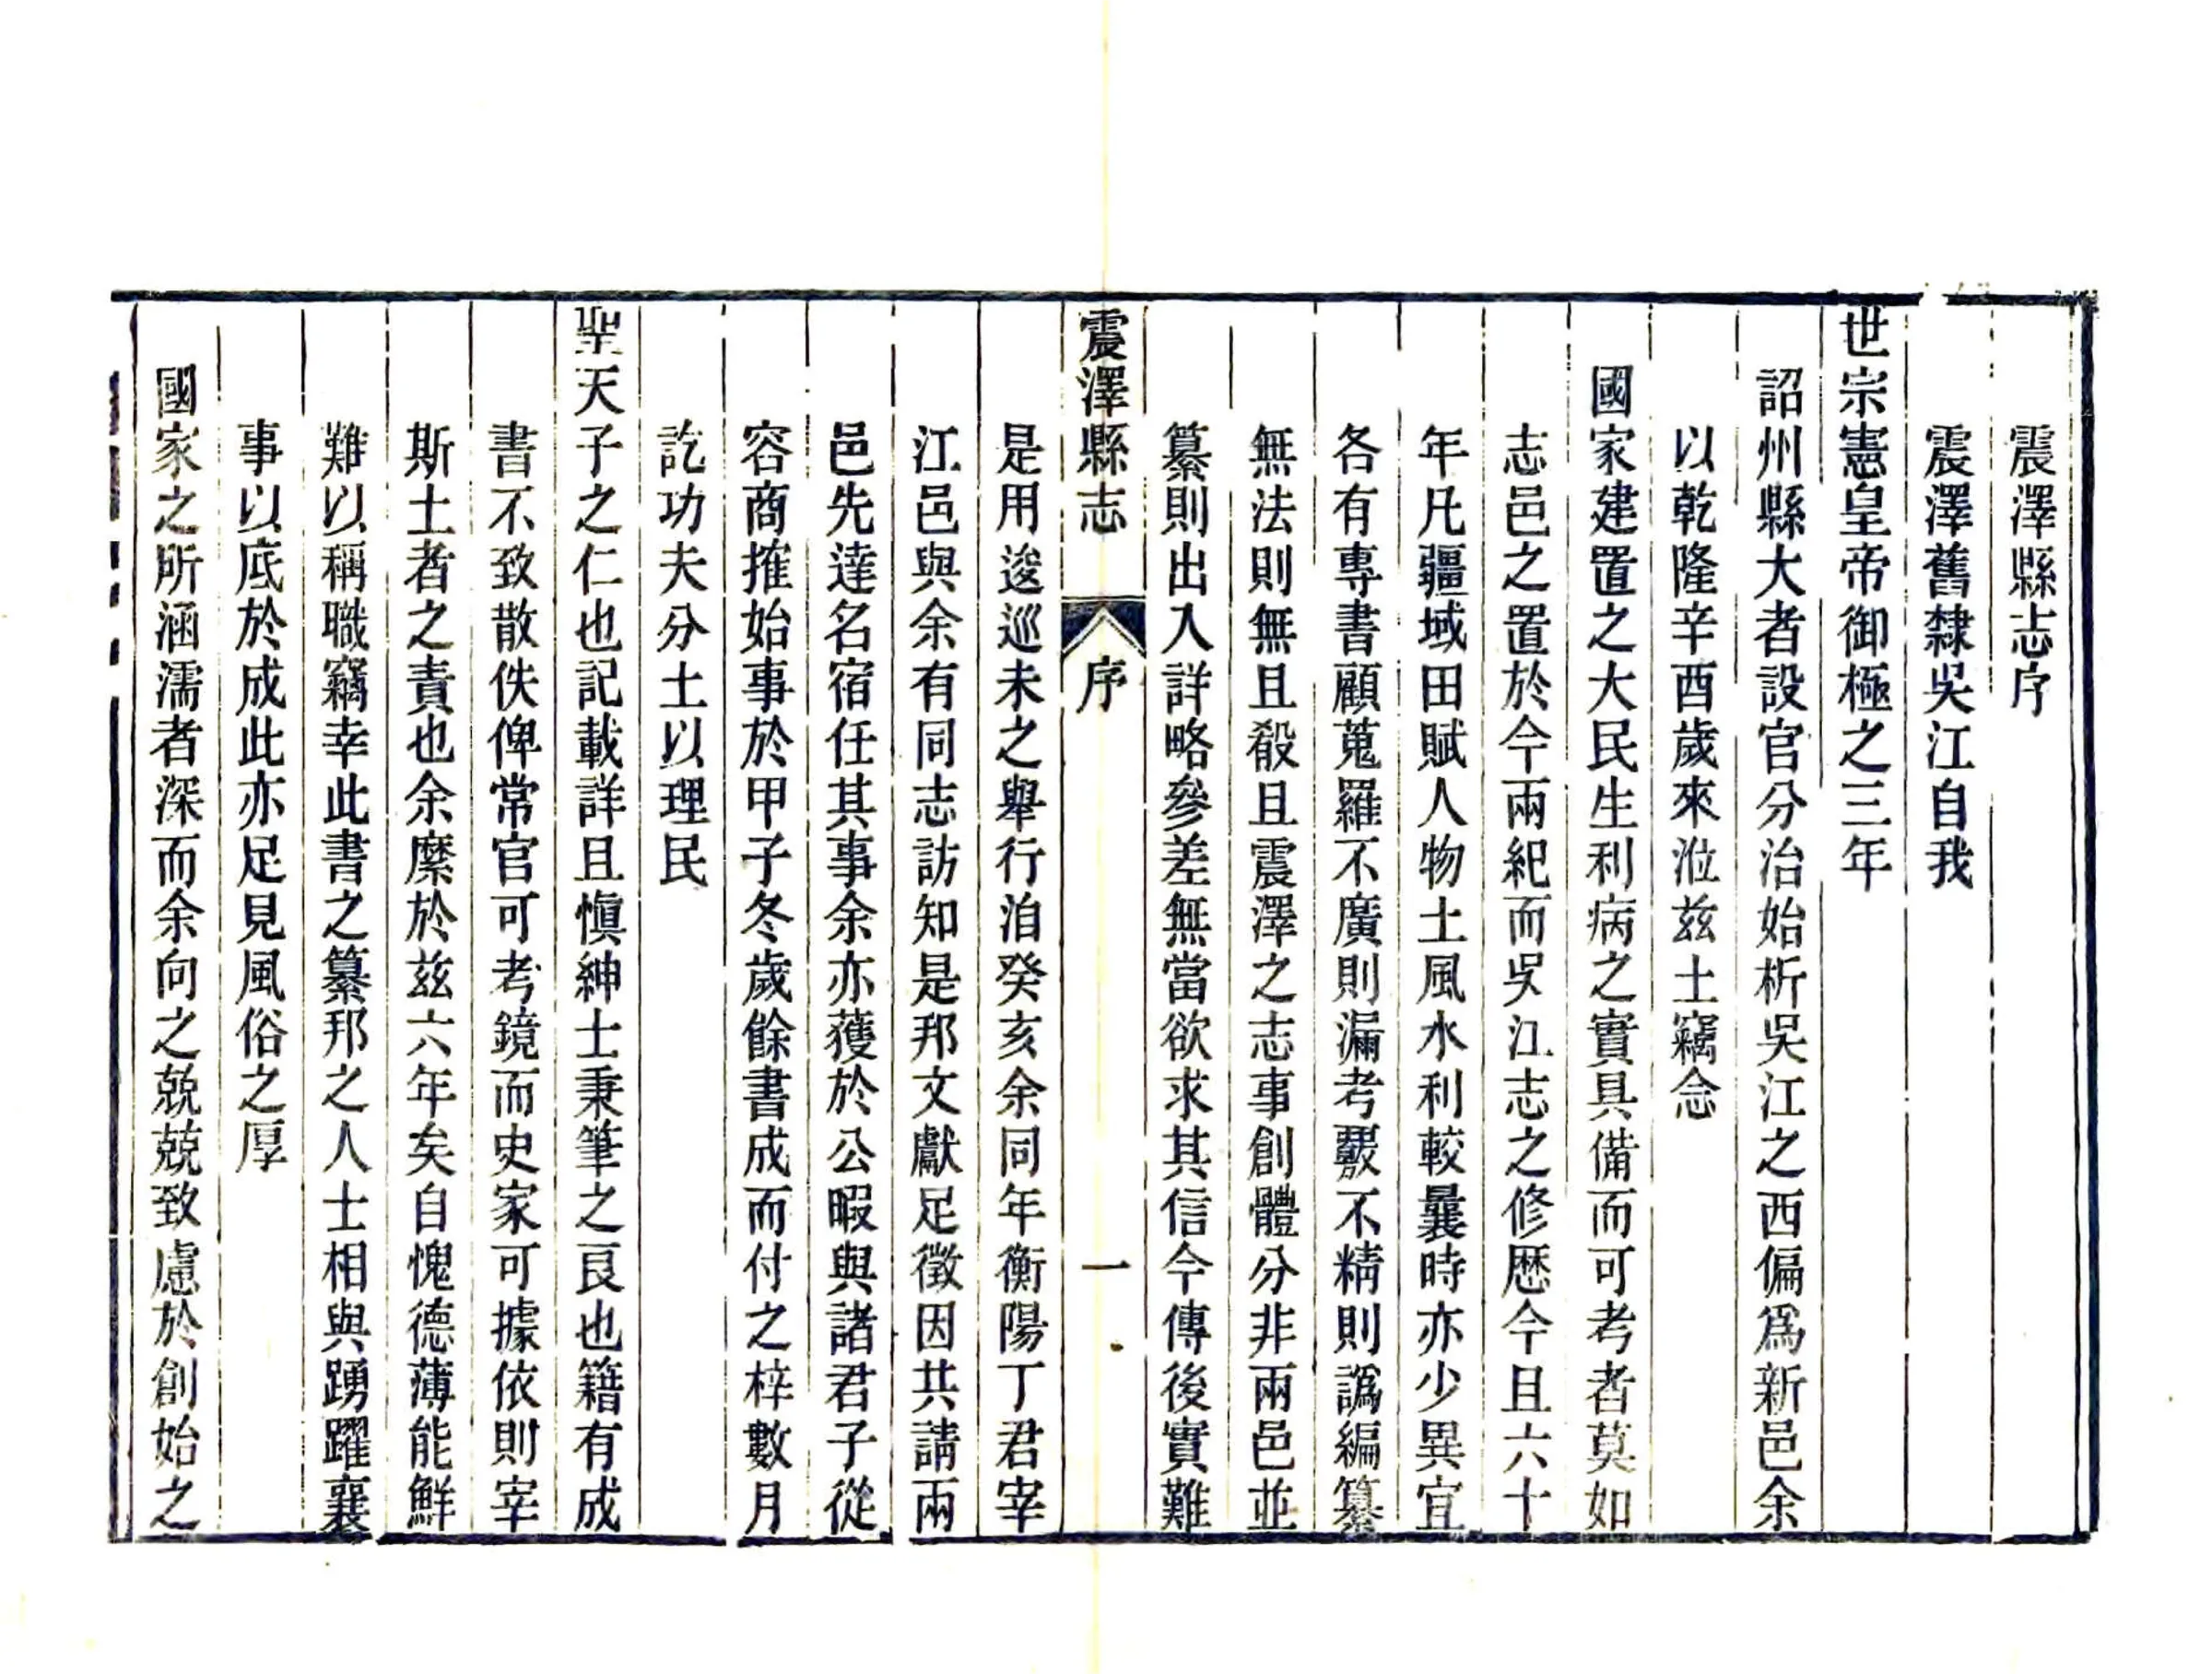 震澤縣志序
震澤舊隸吳江自我
世宗憲皇帝御極之三年
詔州縣大者設官分治始析吳江之西偏爲新邑余
以乾隆辛酉歲來涖兹土竊念
國家建置之大民生利病之實具備而可考者莫如
志邑之置於今兩紀而吳江志之修歴今且六十
年凡疆域田賦人物土風水利較曩時亦少異宜
各有專書顧蒐羅不廣則漏考覈不精則譌編纂
無法則無且殽且震澤之志事創體分非兩邑並
纂則出入詳略參差無當欲求其信今傳後實難
震澤縣志 序 一
是用逡巡未之舉行洎癸亥余同年衡陽丁君宰
江邑與余有同志訪知是邦文獻足徵因共請兩
邑先達名宿任其事余亦獲於公暇與諸君子從
容商搉始事於甲子冬歲餘書成而付之梓數月
訖功夫分土以理民
聖天子之仁也記載詳且愼紳士秉筆之良也籍有成
書不致散佚俾常官可考鏡而史家可據依則宰
斯土者之責也余縻於兹六年矣自愧德薄能鮮
難以稱職竊幸此書之纂邦之人士相與踴躍襄
事以底於成此亦足見風俗之厚
國家之所涵濡者深而余向之兢兢致慮於創始之